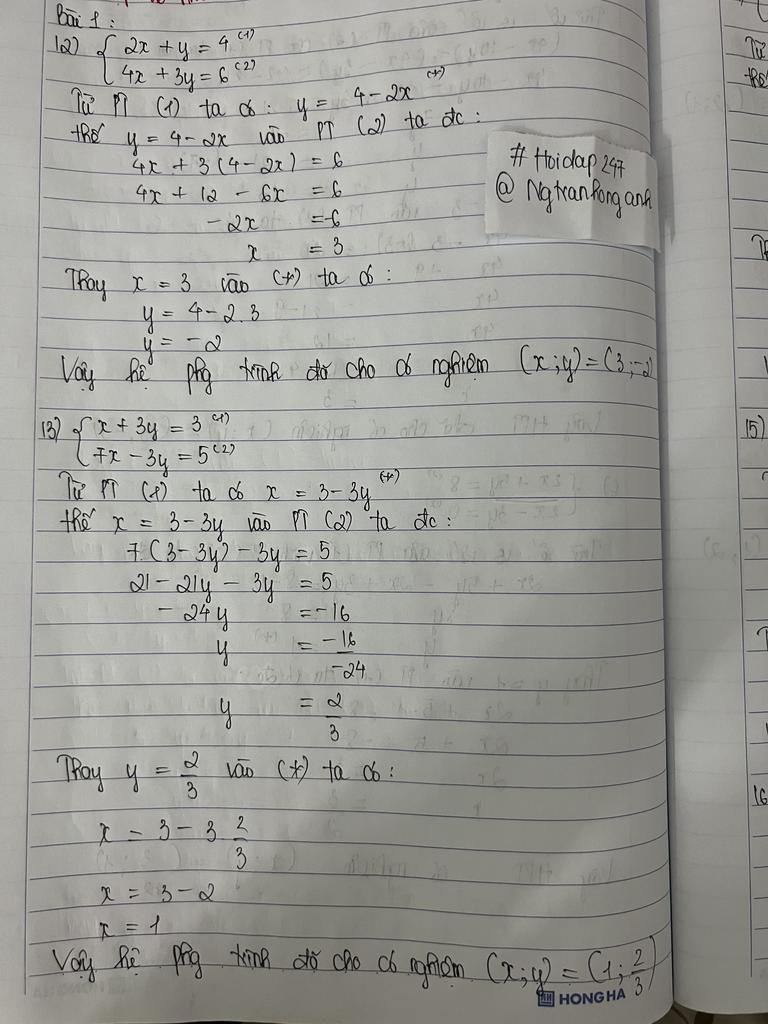 Bài 1:
12) { 2x + y = 4 (1)
4x + 3y = 6 (2)
Từ PT (1) ta có: y = 4 - 2x (*)
thế y = 4 - 2x vào PT (2) ta đc:
4x + 3(4 - 2x) = 6
4x + 12 - 6x = 6
- 2x = -6
x = 3
# Hoidap247
@ Ngtranhonganh
Thay x = 3 vào (*) ta có:
y = 4 - 2.3
y = -2
Vậy hệ phg trình đã cho có nghiệm (x;y) = (3;-2)
13) { x + 3y = 3 (1)
7x - 3y = 5 (2)
Từ PT (1) ta có x = 3 - 3y (*)
thế x = 3 - 3y vào PT (2) ta đc:
7.(3 - 3y) - 3y = 5
21 - 21y - 3y = 5
- 24y = -16
y = -16/-24
y = 2/3
Thay y = 2/3 vào (*) ta có:
x = 3 - 3 2/3
x = 3 - 2
x = 1
Vậy hệ phg trình đã cho có nghiệm (x;y) = (1; 2/3)
HONG HA
15)
16